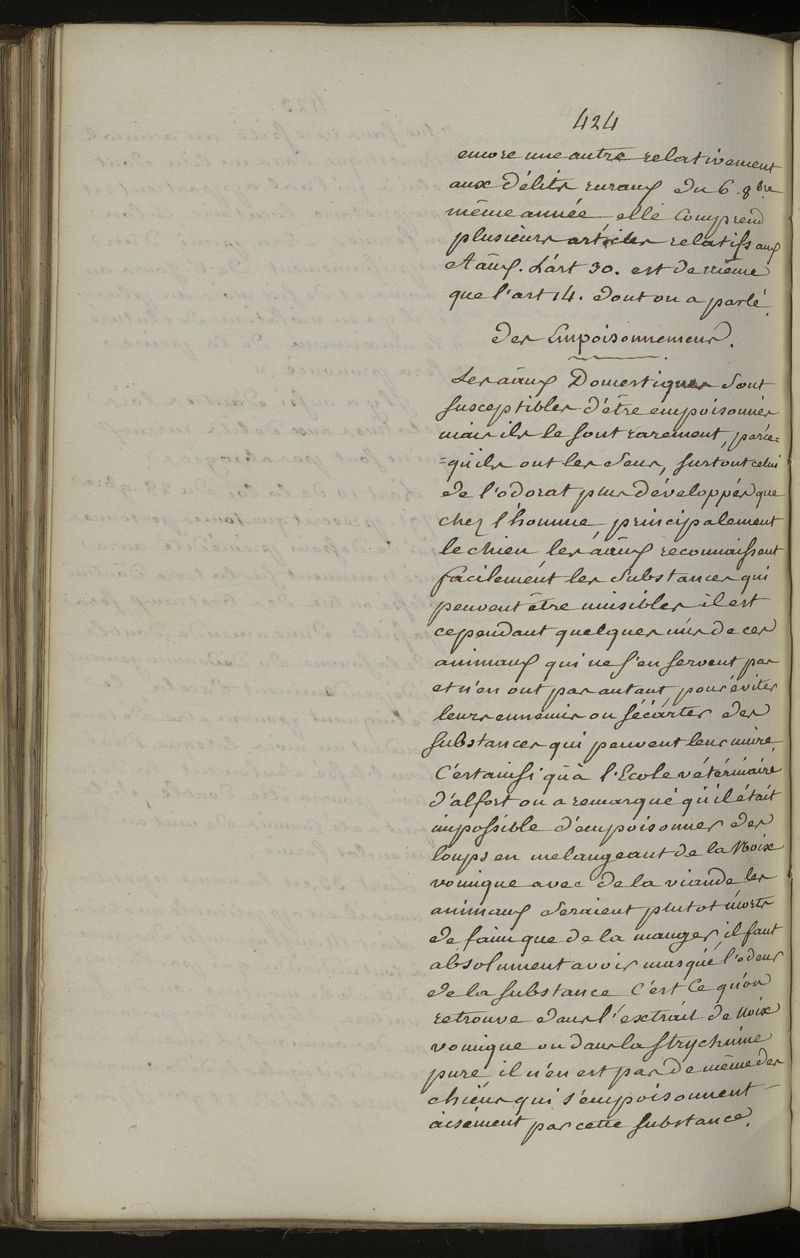 424
encore une autre relativement
aux délits ruraux du 6. 8bre
même année elle Comprend
plusieurs articles relatifs aux
et aûx. L'art 30. est de même
que l'art 14. dont on a parlé.
des Empoisonnemens.
Les aâux Domestiques sont
susceptibles d'être empoisonnés
mais ils le sont rarement, parce=
=qu'ils ont les sens, surtout celui
de l'odorat plus développés que
chez l'homme principalement
le chien les aâux reconnaissent
facilement les substances qui
peuvent être nuisibles il est
cependant quelques uns de ces
animaux qui ne s'en servent pas
et n'en ont pas autant pour éviter
leurs ennemis ou sécarter des
substances qui peuvent leur nuire.
C'est ainsi qu'à l'Ecole vétérinaire
d'alfort on a remarqué qu'il était
impossible d'empoisonner des
loups en melangeant de la Noix
vomique avec de la viande les
animaux seraient plutot morts
de faim que de la manger, il faut
absolument avoir masqué l'odeur
de la substance C'est Ce qu'on
retrouve dans l'extrait de Noix
vomique ou dans la strychnine
pure il n'en est pas de même des
chiens qui s'empoisonnent
aisément par cette substance.